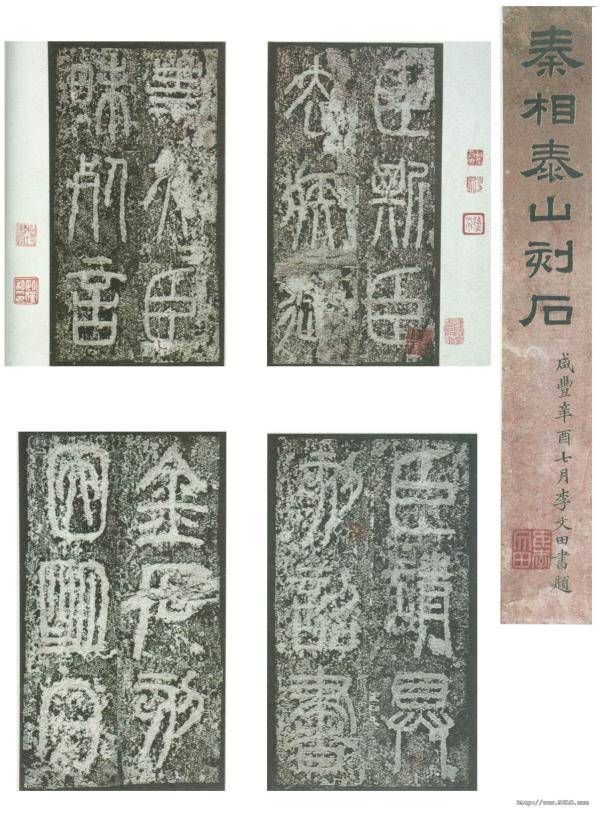 秦相泰山刻石
咸豐辛酉七月李文田書題
臣斯臣
去疾御
史夫臣
昧死言
臣請具
刻詔書
金石刻
因明白
http://www.9610.com